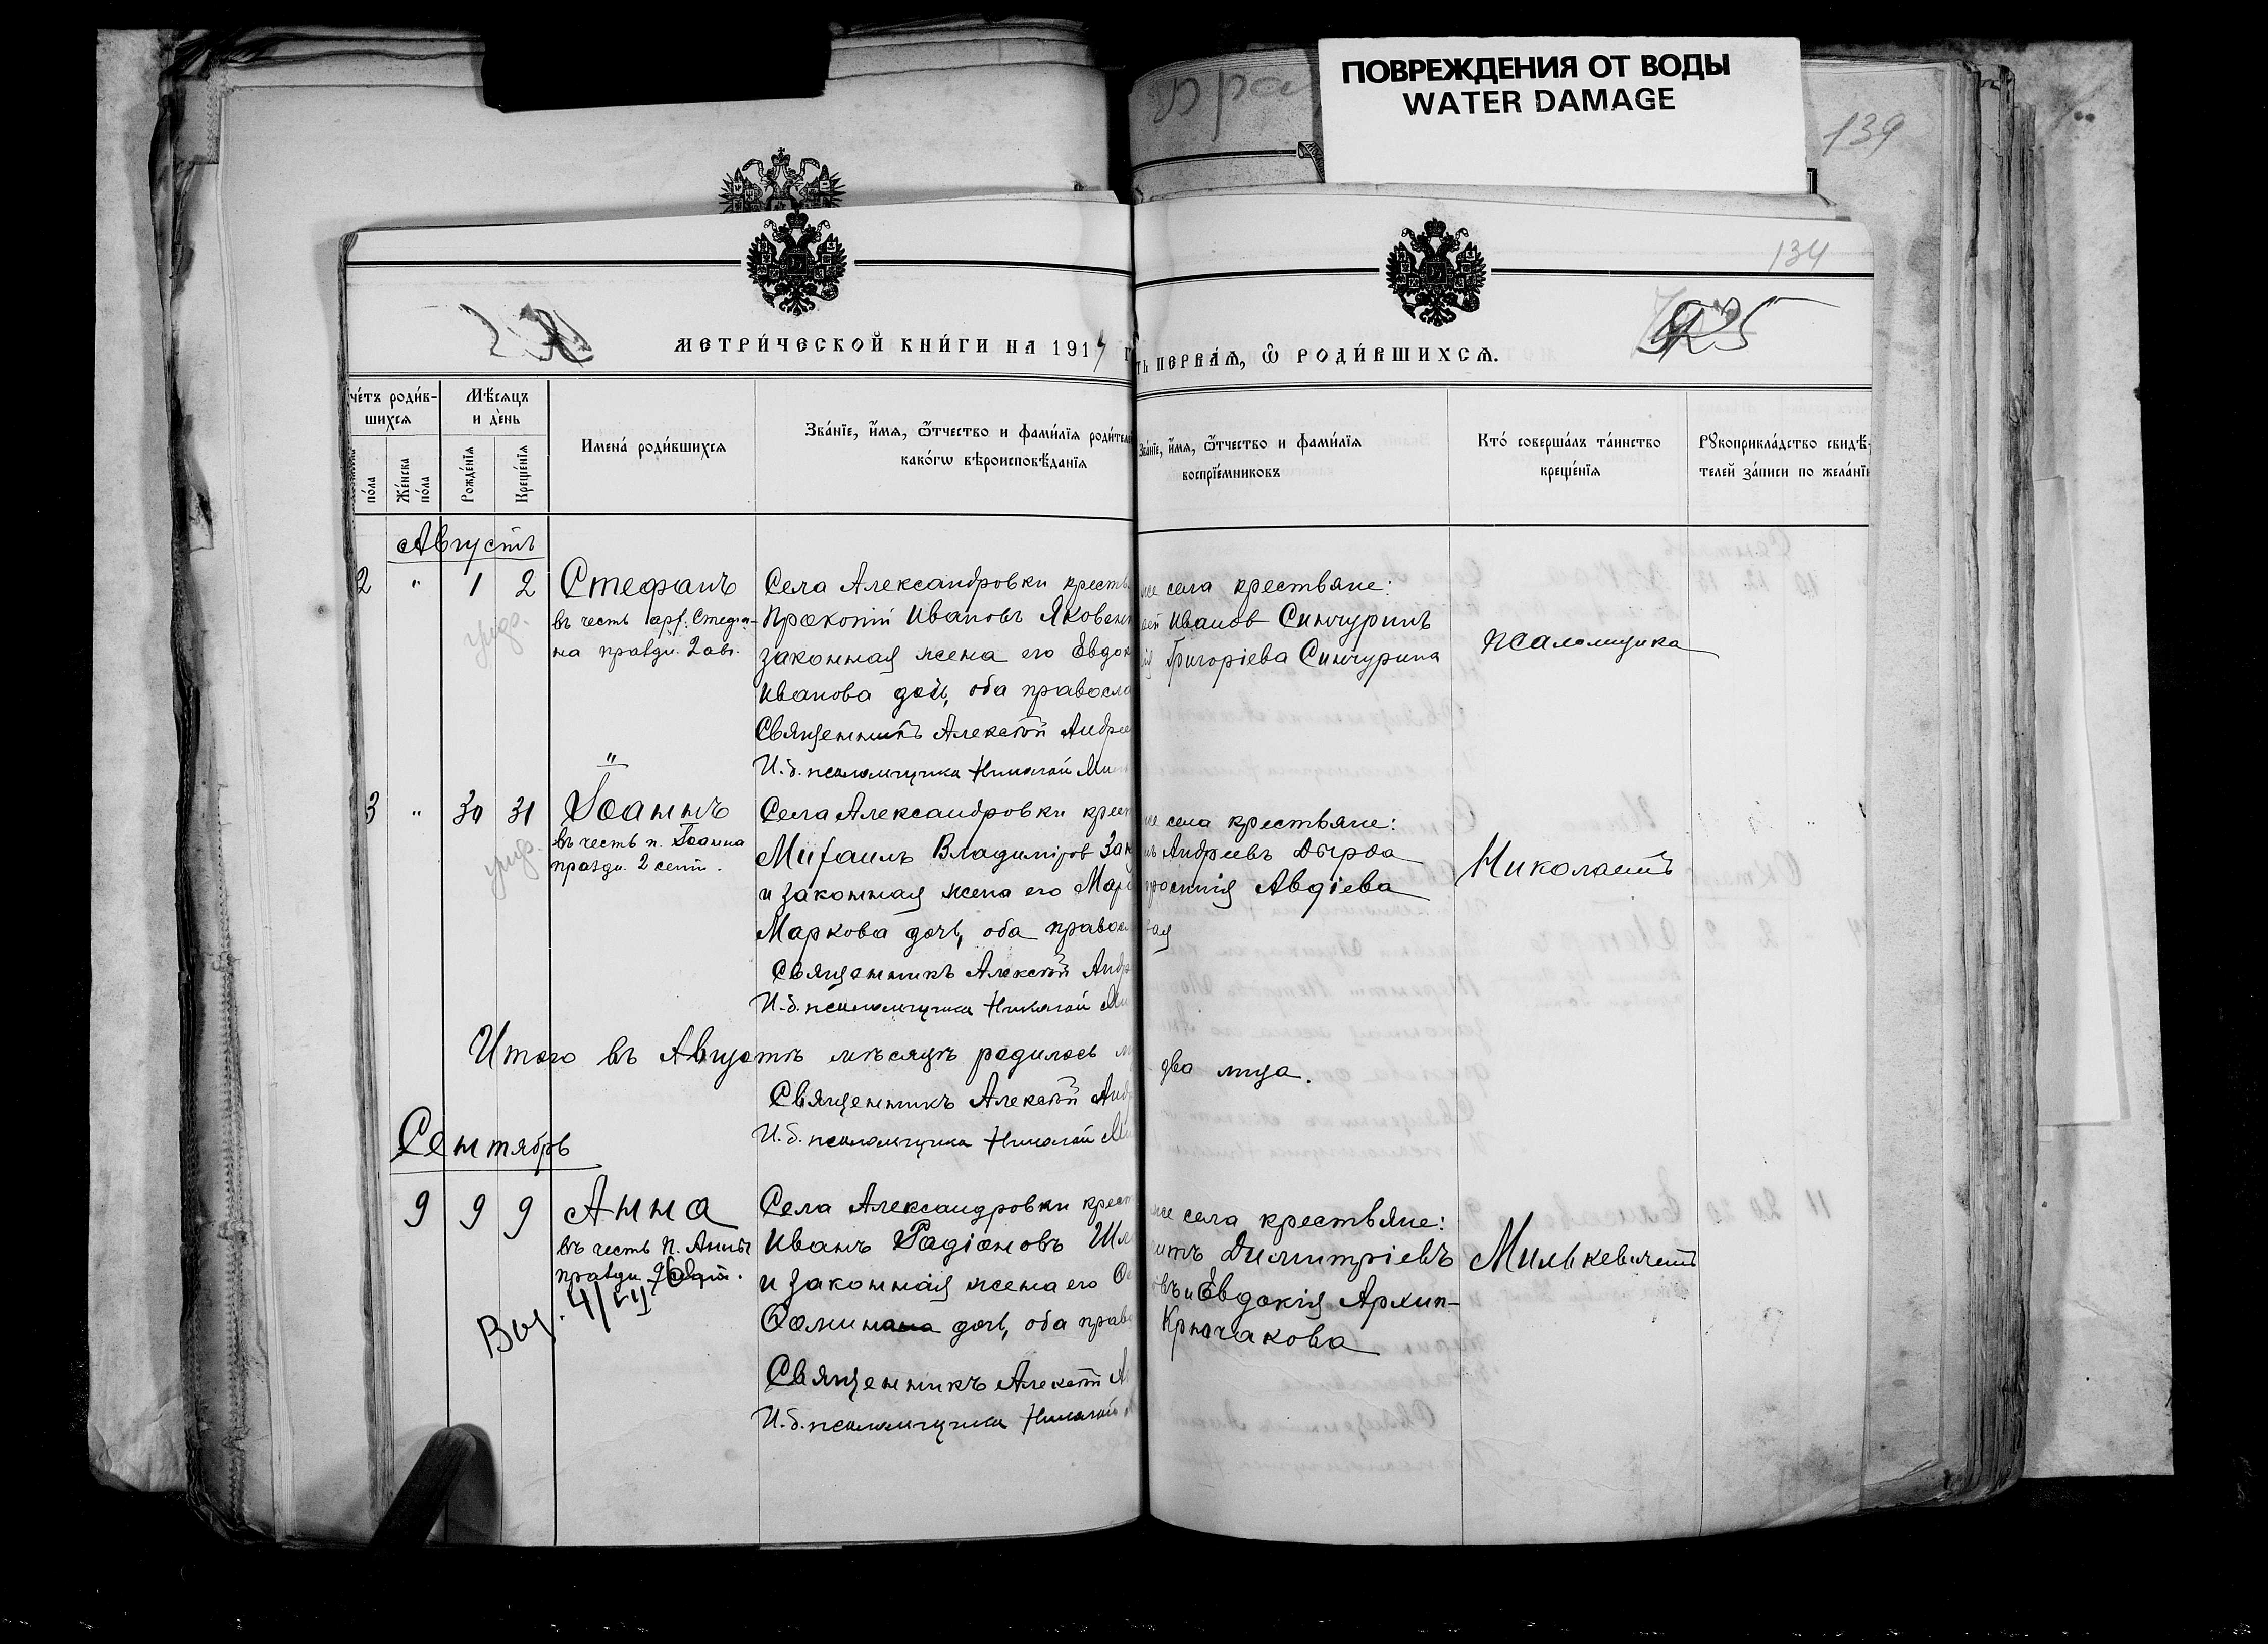 ПОВРЕЖДЕНИЯ ОТ ВОДЫ
WATER DAMAGE
139
134
МЕТРИ́ЧЕСКОЙ КНИ́ГИ НА 1914 Г
ТЬ ПЕРВА́Я, Ѿ РОДИ́ВШИХСЯ.
че́тъ роди́в-
шихся
Мѣ́сяцъ
и де́нь
пола
Же́нска
по́ла
Рожде́нїя
Креще́нїя
Имена́ роди́вшихся
Зва́нїе, и҆́мя, ѻ҆́тчество и фами́лїя роди́теле
како́гѡ вѣроисповѣ́данїя
Зва́нїе, и҆́мя, ѻ҆́тчество и фами́лїя
воспрїе́мниковъ
Кто́ соверша́лъ та́инство
креще́нїя
Рꙋкоприкла́дство свидѣ́-
телей за́писи по жела́нїю
Августъ
2 " 1 2 Стефанъ
въ честь арх. Стефа-
на праздн. 2 авг.
Села Александровки кресть
Прокопій Ивановъ Яковенк
законная жена его Евдок
Иванова дочь, оба правосла
Священникъ Алексѣй Андре
И. д. псаломщика Николай Мил
же села крестьяне:
Иванов Синчуринъ
Григоріева Синчурина
псаломщика
"
3 " 30 31 Іоаннъ
въ честь п. Іоанна
праздн. 2 сент.
Села Александровки крест
Михаилъ Владиміров Зак
и законная жена его Мар
Маркова дочь, оба правос
Священникъ Алексѣй Андр
И. д. псаломщика Николай Ми
же села крестьяне:
Андреевъ Дырда
Авдіева
вая
Николаемъ
Итого въ Августѣ мѣсяцѣ родилось м
два лица.
Священникъ Алексѣй Анд
И. д. псаломщика Николай Ми
Сентябрь
9 9 9 Анна
въ честь п. Анны
праздн. 9 сент.
4/VII
Села Александровки крест
Иванъ Радіоновъ Шл
и законная жена его
дочь, оба право
Священникъ Алексѣй А
И. д. псаломщика Николай
же села крестьяне:
Димитріевъ
овъ и Евдокія Архип-
Крючакова
Милькевичемъ